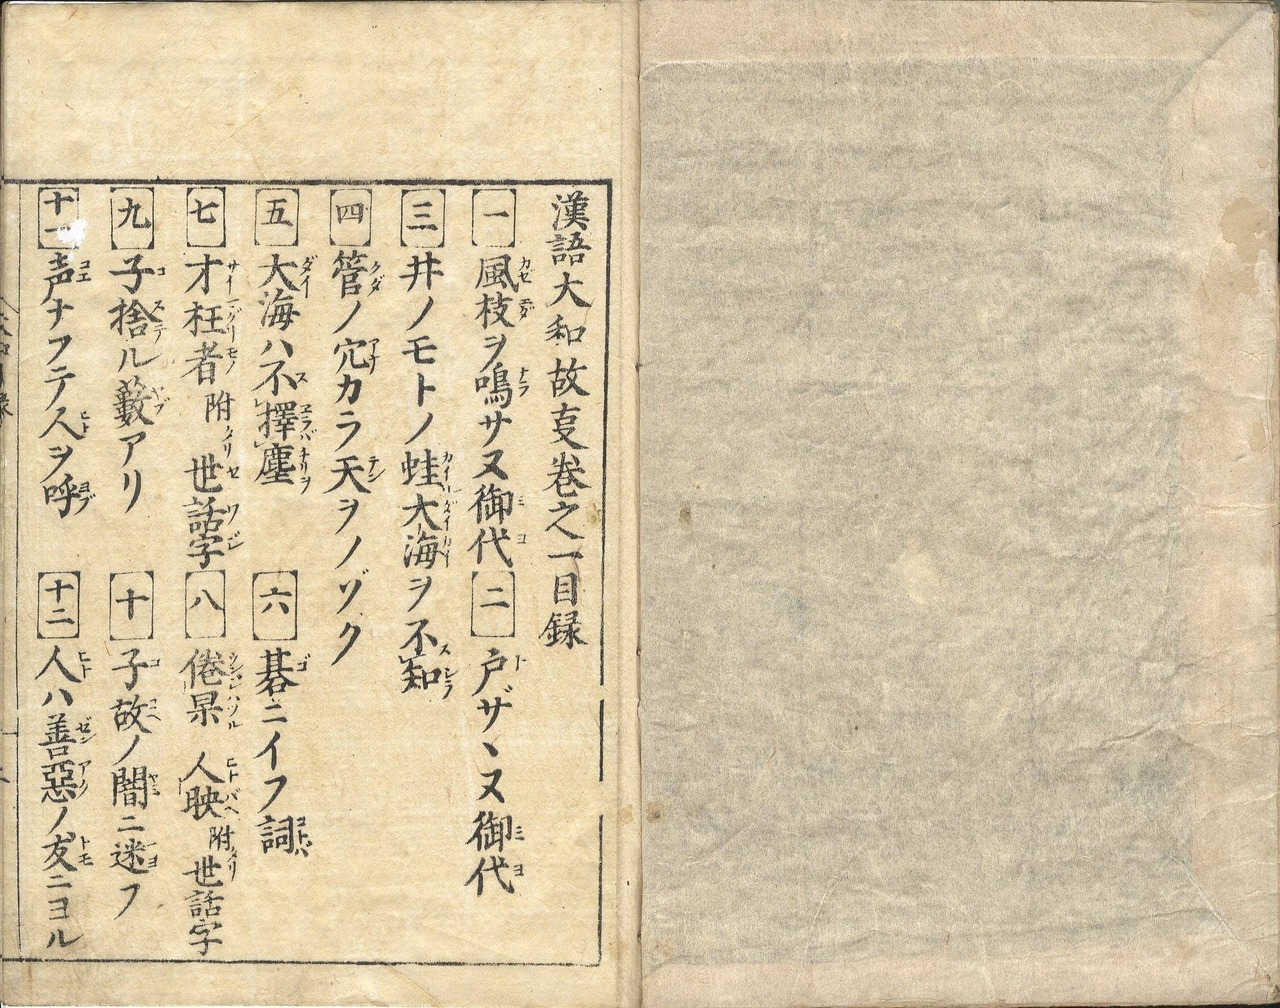 漢語大和故叓巻之一目録
一 風枝ヲ鳴サヌ御代 二 戸ザヽヌ御代
三 井ノモトノ蛙大海ヲ不知
四 管ノ穴カラ天ヲノゾク
五 大海ハ不擇塵 六 碁ニイフ詞
七 才枉者 附タリ 世話字 八 倦杲 人映 附タリ 世話字
九 子捨ル藪アリ 十 子故ノ闇ニ迷フ
十一 声ナフテ人ヲ呼 十二 人ハ善惡ノ友ニヨル